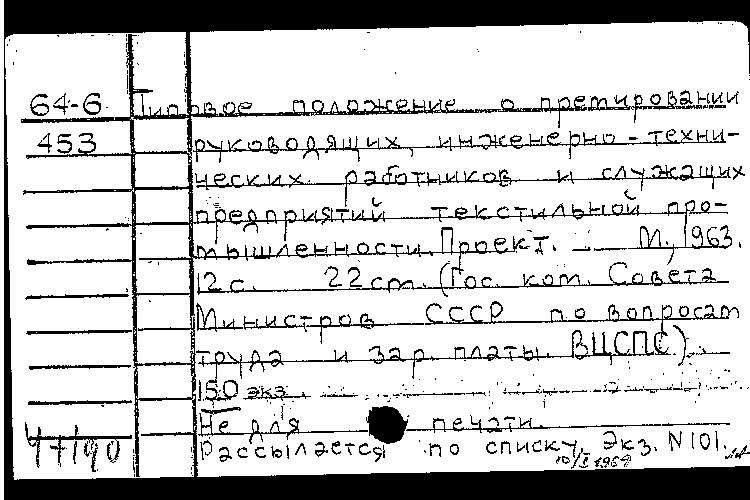 64-6 Типовое положение о премировании
453 руководящих, инженерно-техни-
ческих работников и служащих
предприятий текстильной про-
мышленности. Проект. М., 1963.
12 с. 22 см. (Гос. ком. Совета
Министров СССР по вопросам
труда и зар. платы. ВЦСПС).
150 экз.
Не для печати.
47190 Рассылается по списку. Экз. N 101.